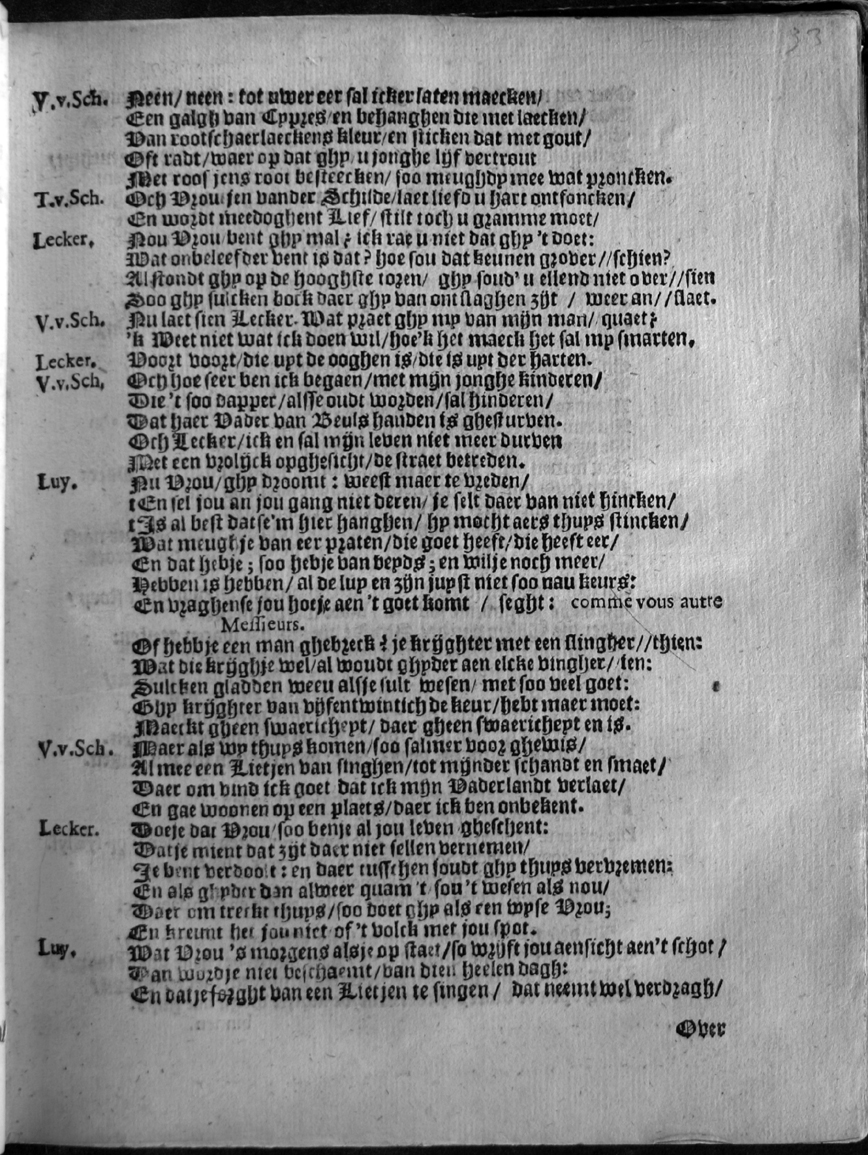 33
V.v.Sch. Neen/ neen: tot uwer eer sal icker laten maecken/
Een galgh van Cypres/ en behanghen die met laecken/
Van rootschaerlaeckens kleur/en sticken dat met gout/
Oft radt/waer op dat ghy u jonghe lijf vertrout
Met roosjens root besteecken/ soo meughdy mee wat proncken.
T.v.Sch. Och Vrou jen vander Schilde/laet liefd u hart ontfoncken/
En wordt meedoghent Lief/ stilt toch u gramme moet/
Lecker. Nou Vrou bent ghy mal? ick rae u niet dat ghy 't doet:
Wat onbeleefder vent is dat? hoe sou dat keunen grover//schien?
Al stondt ghy op de hooghste toren/ ghy soud' u ellend niet over//sien
Soo ghy sulcken bock daer ghy van ontslaghen zijt / weer an//slaet.
V.v.Sch. Nu laet sien Lecker. Wat praet ghy my van mijn man/ quaet?
'k Weet niet wat ick doen wil/hoe'k het maeck het sal my smarten.
Lecker. Voort voort/die uyt de ooghen is/die is uyt der harten.
V.v.Sch. Och hoe seer ben ick begaen/met mijn jonghe kinderen/
Die 't soo dapper/alsse oudt worden/sal hinderen/
Dat haer Vader van Beuls handen is ghesturven.
Och Lecker/ick en sal mijn leven niet meer durven
Met een vrolijck opghesicht/de straet betreden.
Luy. Nu Vrou/ghy droomt: weest maer te vreden/
tEn sel jou an jou gang niet deren/ je selt daer van niet hincken/
tIs al best datse'm hier hanghen/ hy mocht aers thuys stincken/
Wat meught je van eer praten/die goet heeft/die heeft eer/
En dat hebje; soo hebje van beyds; en wil je noch meer/
Hebben is hebben/ al de luy en zijn juyst niet soo nau keurs:
En vraghense jou hoeje aen 't goet komt / seght: comme vous autre
Messieurs.
Of hebbje een man ghebreck? je krijghter met een slingher//thien:
Wat die krijghje wel/al woudt ghyder aen elcke vingher/ten:
Sulcken gladden weeu alsje sult wesen/ met soo veel goet:
Ghy krijghter van vijfentwintich de keur/hebt maer moet:
Maeckt gheen swaericheyt/ daer gheen swaericheyt en is.
V.v.Sch. Maer als wy thuys komen/soo salmer voor ghewis/
Al mee een Lietjen van singhen/tot mijnder schandt en smaet/
Daer om vind ick goet dat ick mijn Vaderlandt verlaet/
En gae woonen op een plaets/daer ick ben onbekent.
Lecker. Doeje dat Vrou/soo benje al jou leven gheschent:
Datje mient dat zijt daer niet sellen vernemen/
Je bent verdoolt: en daer tusschen soudt ghy thuys vervremen:
En als ghyder dan alweer quam 't sou't wesen als nou/
Daer om treckt thuys/soo doet ghy als een wyse Vrou;
En kreunt het jou niet of't volck met jou spot.
Luy. Wat Vrou 's morgens alsje op staet/so wrijft jou aensicht aen't schot/
Dan wordje niet beschaemt/van dien heelen dagh:
En datje sorght van een Lietjen te singen/ dat neemt wel verdragh/
Over